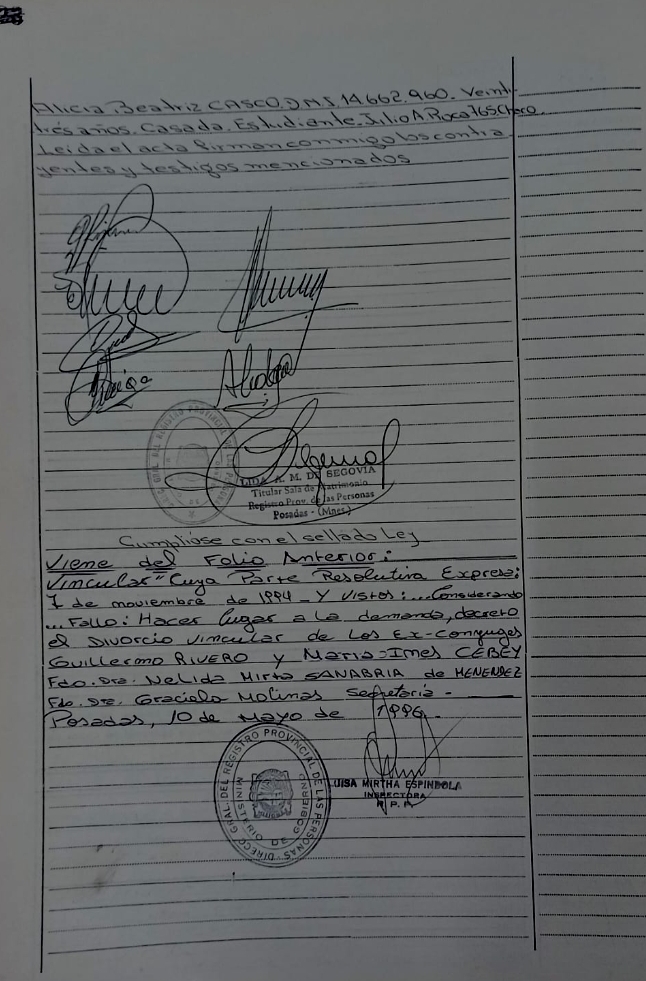 Alicia Beatriz CASCO. D.N.I. 14.662.960. Veinti-
trés años. Casada. Estudiante. Julio A Roca 765 Chaco.
Leida el acta firman conmigo los contra
yentes y testigos mencionados
LIDA A. M. DE SEGOVIA
Titular Sala de Matrimonio
Registro Prov. de las Personas
Posadas - (Mnes.)
Cumplióse con el sellado Ley
Viene del Folio Anterior:
Vincular" Cuya Parte Resolutiva Expresa:
7 de noviembre de 1994 - Y Vistos:... Considerando
... Fallo: Hacer lugar a la demanda, decreto
el Divorcio Vincular de Los Ex-Conyuges
Guillermo RIVERO y Maria Ines CEBEY
Fdo. Dra. Nelida Mirta SANABRIA de MENENDEZ
Fdo. Dra. Graciela Molinas Secretaria -
Posadas, 10 de Mayo de 1996 -
DIRECC GRAL. DEL REGISTRO PROVINCIAL DE LAS PERSONAS
MINISTERIO DE GOBIERNO
UISA MIRTHA ESPINDOLA
INSPECTORA
R. P. P.